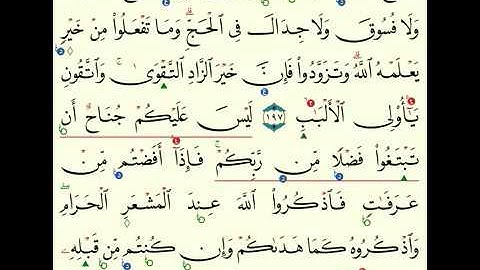 وَلَا فُسُوقَ وَلَا جِدَالَ فِى الْحَجِّ ۗ وَمَا تَفْعَلُوا۟ مِنْ خَيْرٍ
يَعْلَمْهُ اللَّهُ ۗ وَتَزَوَّدُوا۟ فَإِنَّ خَيْرَ الزَّادِ التَّقْوَىٰ ۚ وَاتَّقُونِ
يَٰٓأُو۟لِى الْأَلْبَٰبِ ١٩٧ لَيْسَ عَلَيْكُمْ جُنَاحٌ أَن
تَبْتَغُوا۟ فَضْلًا مِّن رَّبِّكُمْ ۚ فَإِذَآ أَفَضْتُم مِّنْ
عَرَفَٰتٍ فَاذْكُرُوا۟ اللَّهَ عِندَ الْمَشْعَرِ الْحَرَامِ ۖ
وَاذْكُرُوهُ كَمَا هَدَىٰكُمْ وَإِن كُنتُم مِّن قَبْلِهِۦ